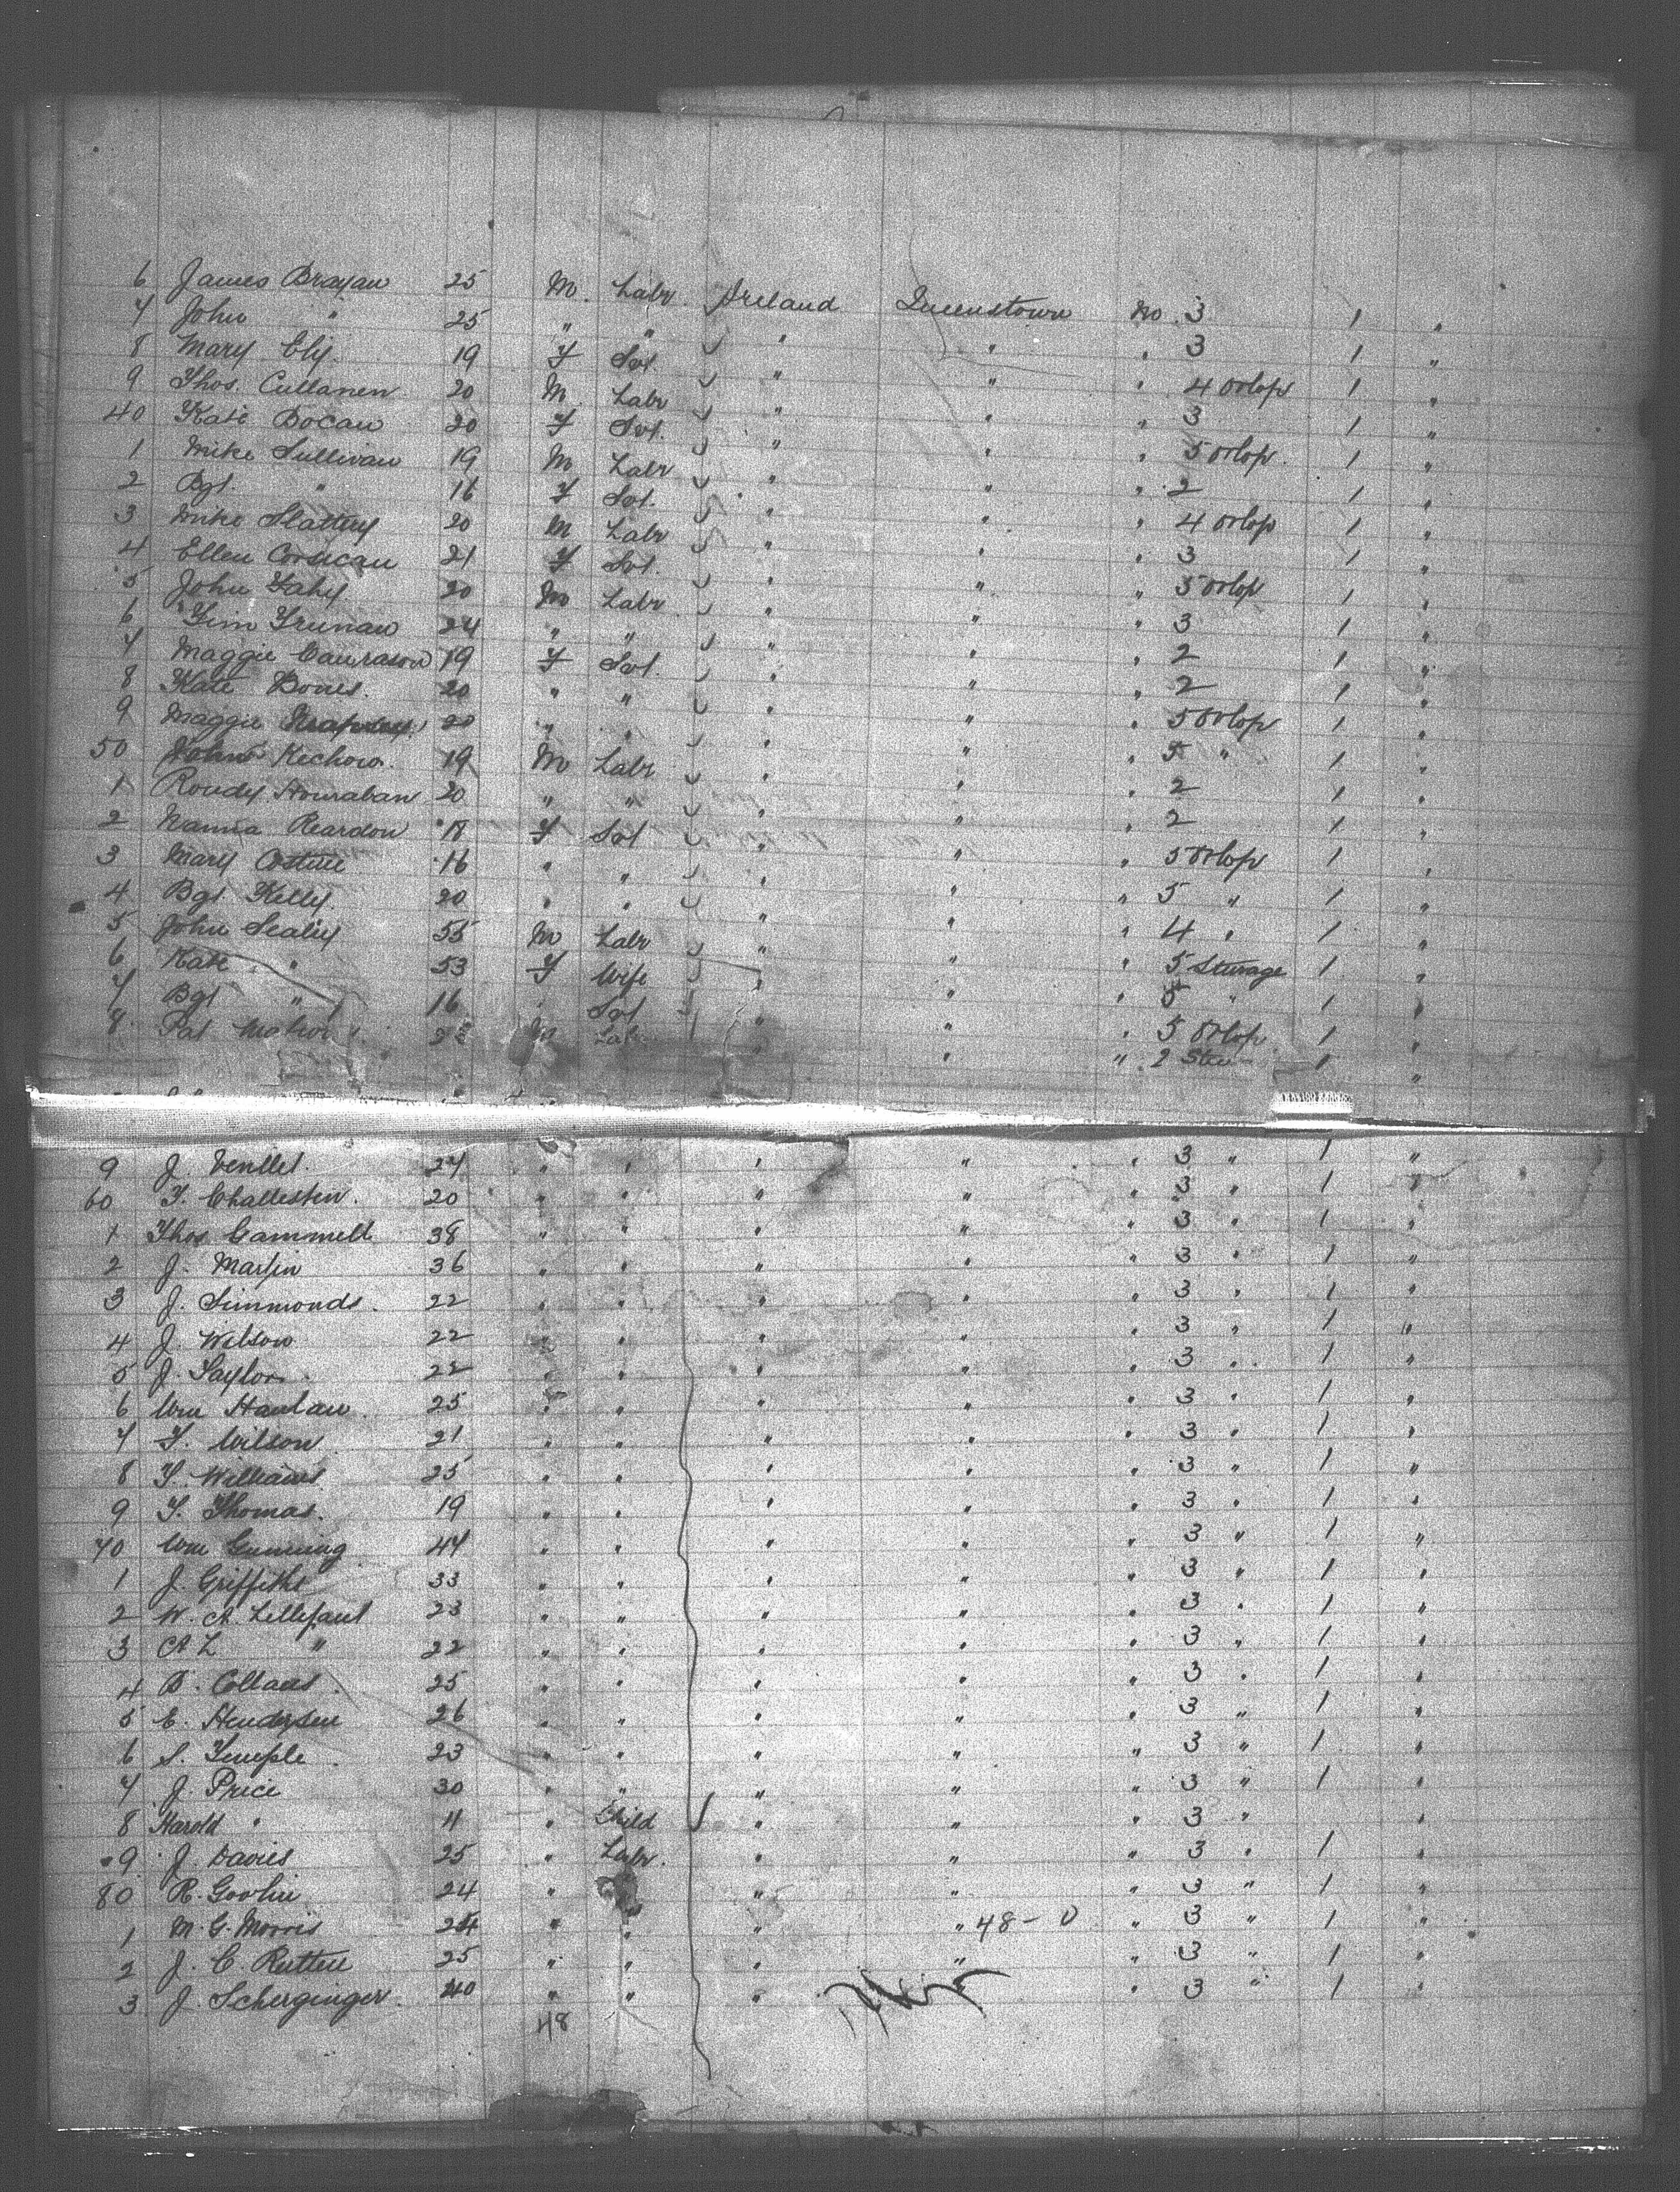 6 James Brayan 25 M. Labr Ireland Queenstown No 3 1 "
7 John " 25 " " " " " 3 1 "
8 Mary Ely. 19 F Svt. " " " 4 Orlop 1 "
9 Thos. Cullanen 20 M. Labr " " " 3 1 "
40 Kate Bocan 20 F Svt. " " " 5 Orlop 1 "
1 Mike Sullivan 19 M Labr " " " 2 1 "
2 Bgt. " 16 F Svt. " " " 4 Orlop 1 "
3 Mike Slattery 20 M Labr " " " 3 1 "
4 Ellen Corsican 21 F Svt. " " " 5 Orlop 1 "
5 John Fahy 20 M Labr " " " 3 1 "
6 Tim 24 " " " " " 2 1 "
7 Maggie 19 F Svt. " " " 2 1 "
8 Kate Bones. 20 " " " " " 5 Orlop 1 "
9 Maggie 20 " " " " " 5 " 1 "
50 John 19 M Labr " " " 2 1 "
1 Roudy 20 " " " " " 2 1 "
2 Nanna Reardon 18 F Svt " " " 5 Orlop 1 "
3 Mary 16 " " " " " 5 " 1 "
4 Bgt. Kelly 20 " " " " " 4 " 1 "
5 John 55 M Labr " " " 5 Sturage 1 "
6 Kate " 53 F Wife " " " 5 " 1 "
7 Bgt " 16 " Svt " " " 5 Orlop 1 "
8 Pat M Labr " " " 2 Stu 1 "
9 J. 24 " " " " " 3 " 1 "
60 T. Challesten. 20 " " " " " 3 " 1 "
1 Thos Gammell 38 " " " " " 3 " 1 "
2 J. Martin 36 " " " " " 3 " 1 "
3 J. Simmonds. 22 " " " " " 3 " 1 "
4 J. Wilson 22 " " " " " 3 " 1 "
5 J. Taylor. 22 " " " " " 3 " 1 "
6 Wm Hanlan 25 " " " " " 3 " 1 "
7 T. Wilson 21 " " " " " 3 " 1 "
8 T. Williams 25 " " " " " 3 " 1 "
9 T. Thomas. 19 " " " " " 3 " 1 "
70 Wm Gunning 47 " " " " " 3 " 1 "
1 J. Griffiths 33 " " " " " 3 " 1 "
2 W. A. 23 " " " " " 3 " 1 "
3 A L " 22 " " " " " 3 " 1 "
4 B. 25 " " " " " 3 " 1 "
5 E. Hendersen 26 " " " " " 3 " 1 "
6 S. Temple 23 " " " " " 3 " 1 "
7 J. Price 30 " " " " " 3 " 1 "
8 Harold " 11 " Child " " " 3 " "
9 J. Davies 25 " Labr. " " " 3 " 1 "
80 R. 24 " " " " " 3 " 1 "
1 M. G. Morris 24 " " " " 48 - 0 " 3 " 1 "
2 J. C. Rutten 25 " " " " " 3 " 1 "
3 J. Scherginger. 40 " " " " 3 " 1 "
48